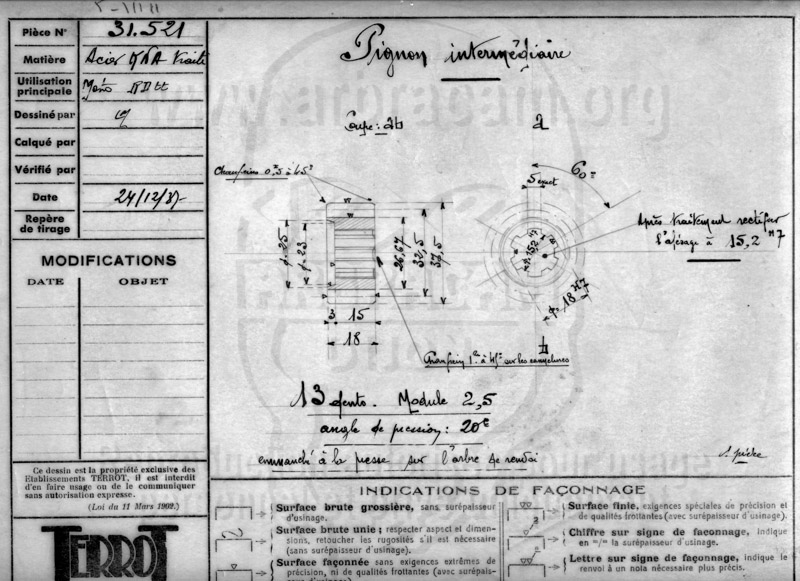 Pièce N° 31.521
Matière Acier traité
Utilisation principale
Dessiné par
Calqué par
Vérifié par
Date 24/12/37
Repère de tirage
MODIFICATIONS
DATE OBJET
Ce dessin est la propriété exclusive des
Etablissements TERROT, il est interdit
d'en faire usage ou de le communiquer
sans autorisation expresse.
(Loi du 11 Mars 1902.)
TERROT
Pignon intermédiaire
Coupe: ab
a
60°
5 exact
Chanfreins 0,5 à 45°
Après traitement rectifier
l'alésage à 15,2 H7
φ. 25
φ. 23
26,67
32,5
37,5
15,2 H7
φ. 18 H7
3 15
18
b
Chanfrein 1 à 45° sur les cannelures
13 dents. Module 2,5
angle de pression: 20°
emmanché à la presse sur l'arbre de renvoi
INDICATIONS DE FAÇONNAGE
Surface brute grossière, sans surépaisseur
d'usinage.
Surface brute unie; respecter aspect et dimen-
sions, retoucher les rugosités s'il est nécessaire
(sans surépaisseur d'usinage).
Surface façonnée sans exigences extrêmes de
précision, ni de qualités frottantes (avec surépais-
Surface finie, exigences spéciales de précision et
de qualités frottantes (avec surépaisseur d'usinage).
Chiffre sur signe de façonnage, indique
en =/= la surépaisseur d'usinage.
Lettre sur signe de façonnage, indique le
renvoi à un nota nécessaire plus précis.
www.arbracam.org